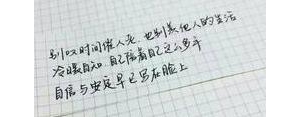 别叹时间催人老,也别羡他人的生活
冷暖自知 自己陪着自己这么多年
自信与安定早已写在脸上